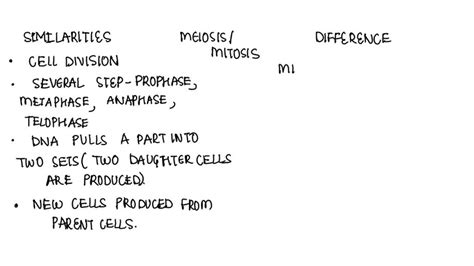 SIMILARITIES MEIOSIS/ DIFFERENCE
MITOSIS
• CELL DIVISION
MI
• SEVERAL STEP-PROPHASE,
METAPHASE, ANAPHASE,
TELOPHASE
• DNA PULLS A PART INTO
TWO SETS( TWO DAUGHTER CELLS
ARE PRODUCED)
• NEW CELLS PRODUCED FROM
PARENT CELLS.